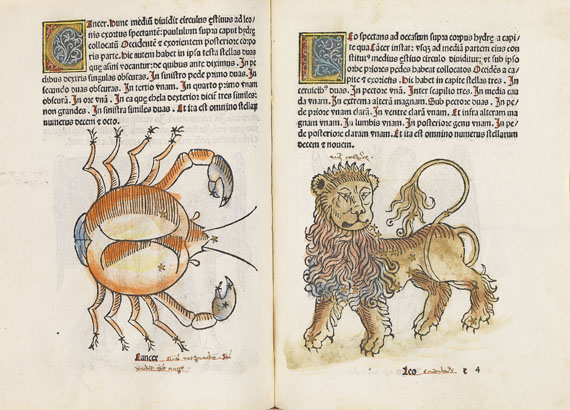 Cancer. Hunc mediũ diuidit circulus ęstiuus ad leo
nis exortus spectantē: paululum supra caput hydrę
collocatũ Occidentē & exorientem posteriore corpo
ris parte. Hic autem habet in ipsa testa stellas duas
que asini vocantur: de quibus ante diximus. In pe
dibus dextris singulas obscuras. In sinistro pede primo duas. In
secundo duas obscuras. In tertio vnam. In quarto primo vnam
obscurā. In ore vnā. In ea que chela dexterior dicit̃ tres similes:
non grandes. In sinistra similes duas. Et ita est omnino stellarũ
numerus decem & octo.
Cancer
Leo spectans ad occasum supra corpus hydrę a capi
te qua Cācer instat: vsq̃ ad mediā partem eius con
stitut9 medius ęstiuo circulo diuiditur: vt sub ipso
orbe priores pedes habeat collocatos Occidēs a ca
pite & exoriens. Hic habet in capite stellas tres. In
ceruicib9 duas. In pectore vnā. Inter scapilio tres. In media cau
da vnam. In extrema alterā magnam. Sub pectore duas. In pe
de priore vnam clarā. In ventre clarā vnam. Et infra alteram ma
gnam vnam. In lumbis vnam. In posteriore genu vnam. In pe
de posteriore claram vnam. Et ita est omnino numerus stellarum
decem & nouem.
Leo
4